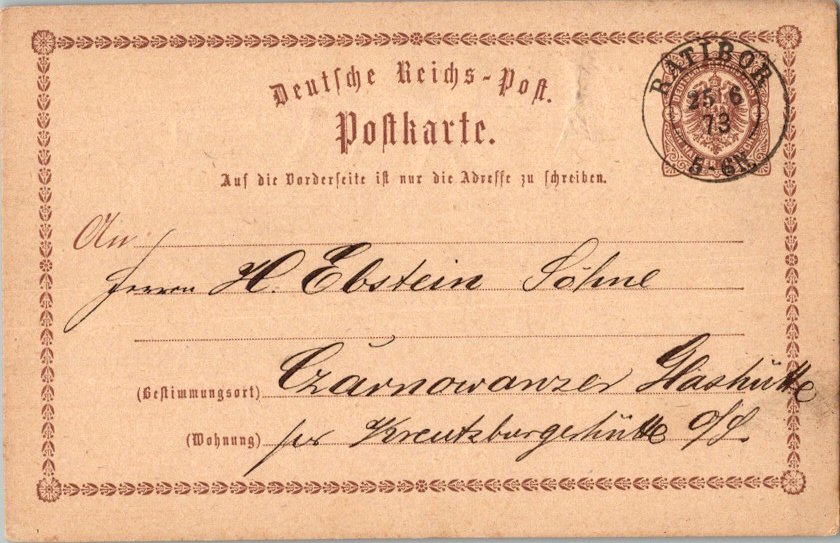 Deutsche Reichs-Post.
Postkarte.
Auf die Vorderseite ist nur die Adresse zu schreiben.
RATIBOR
25 6
73
5-6N.
An
Herrn H. Ebstein Söhne
(Bestimmungsort) Czarnowanzer Glashütte
(Wohnung) per Kreutzburgerhütte O/S.